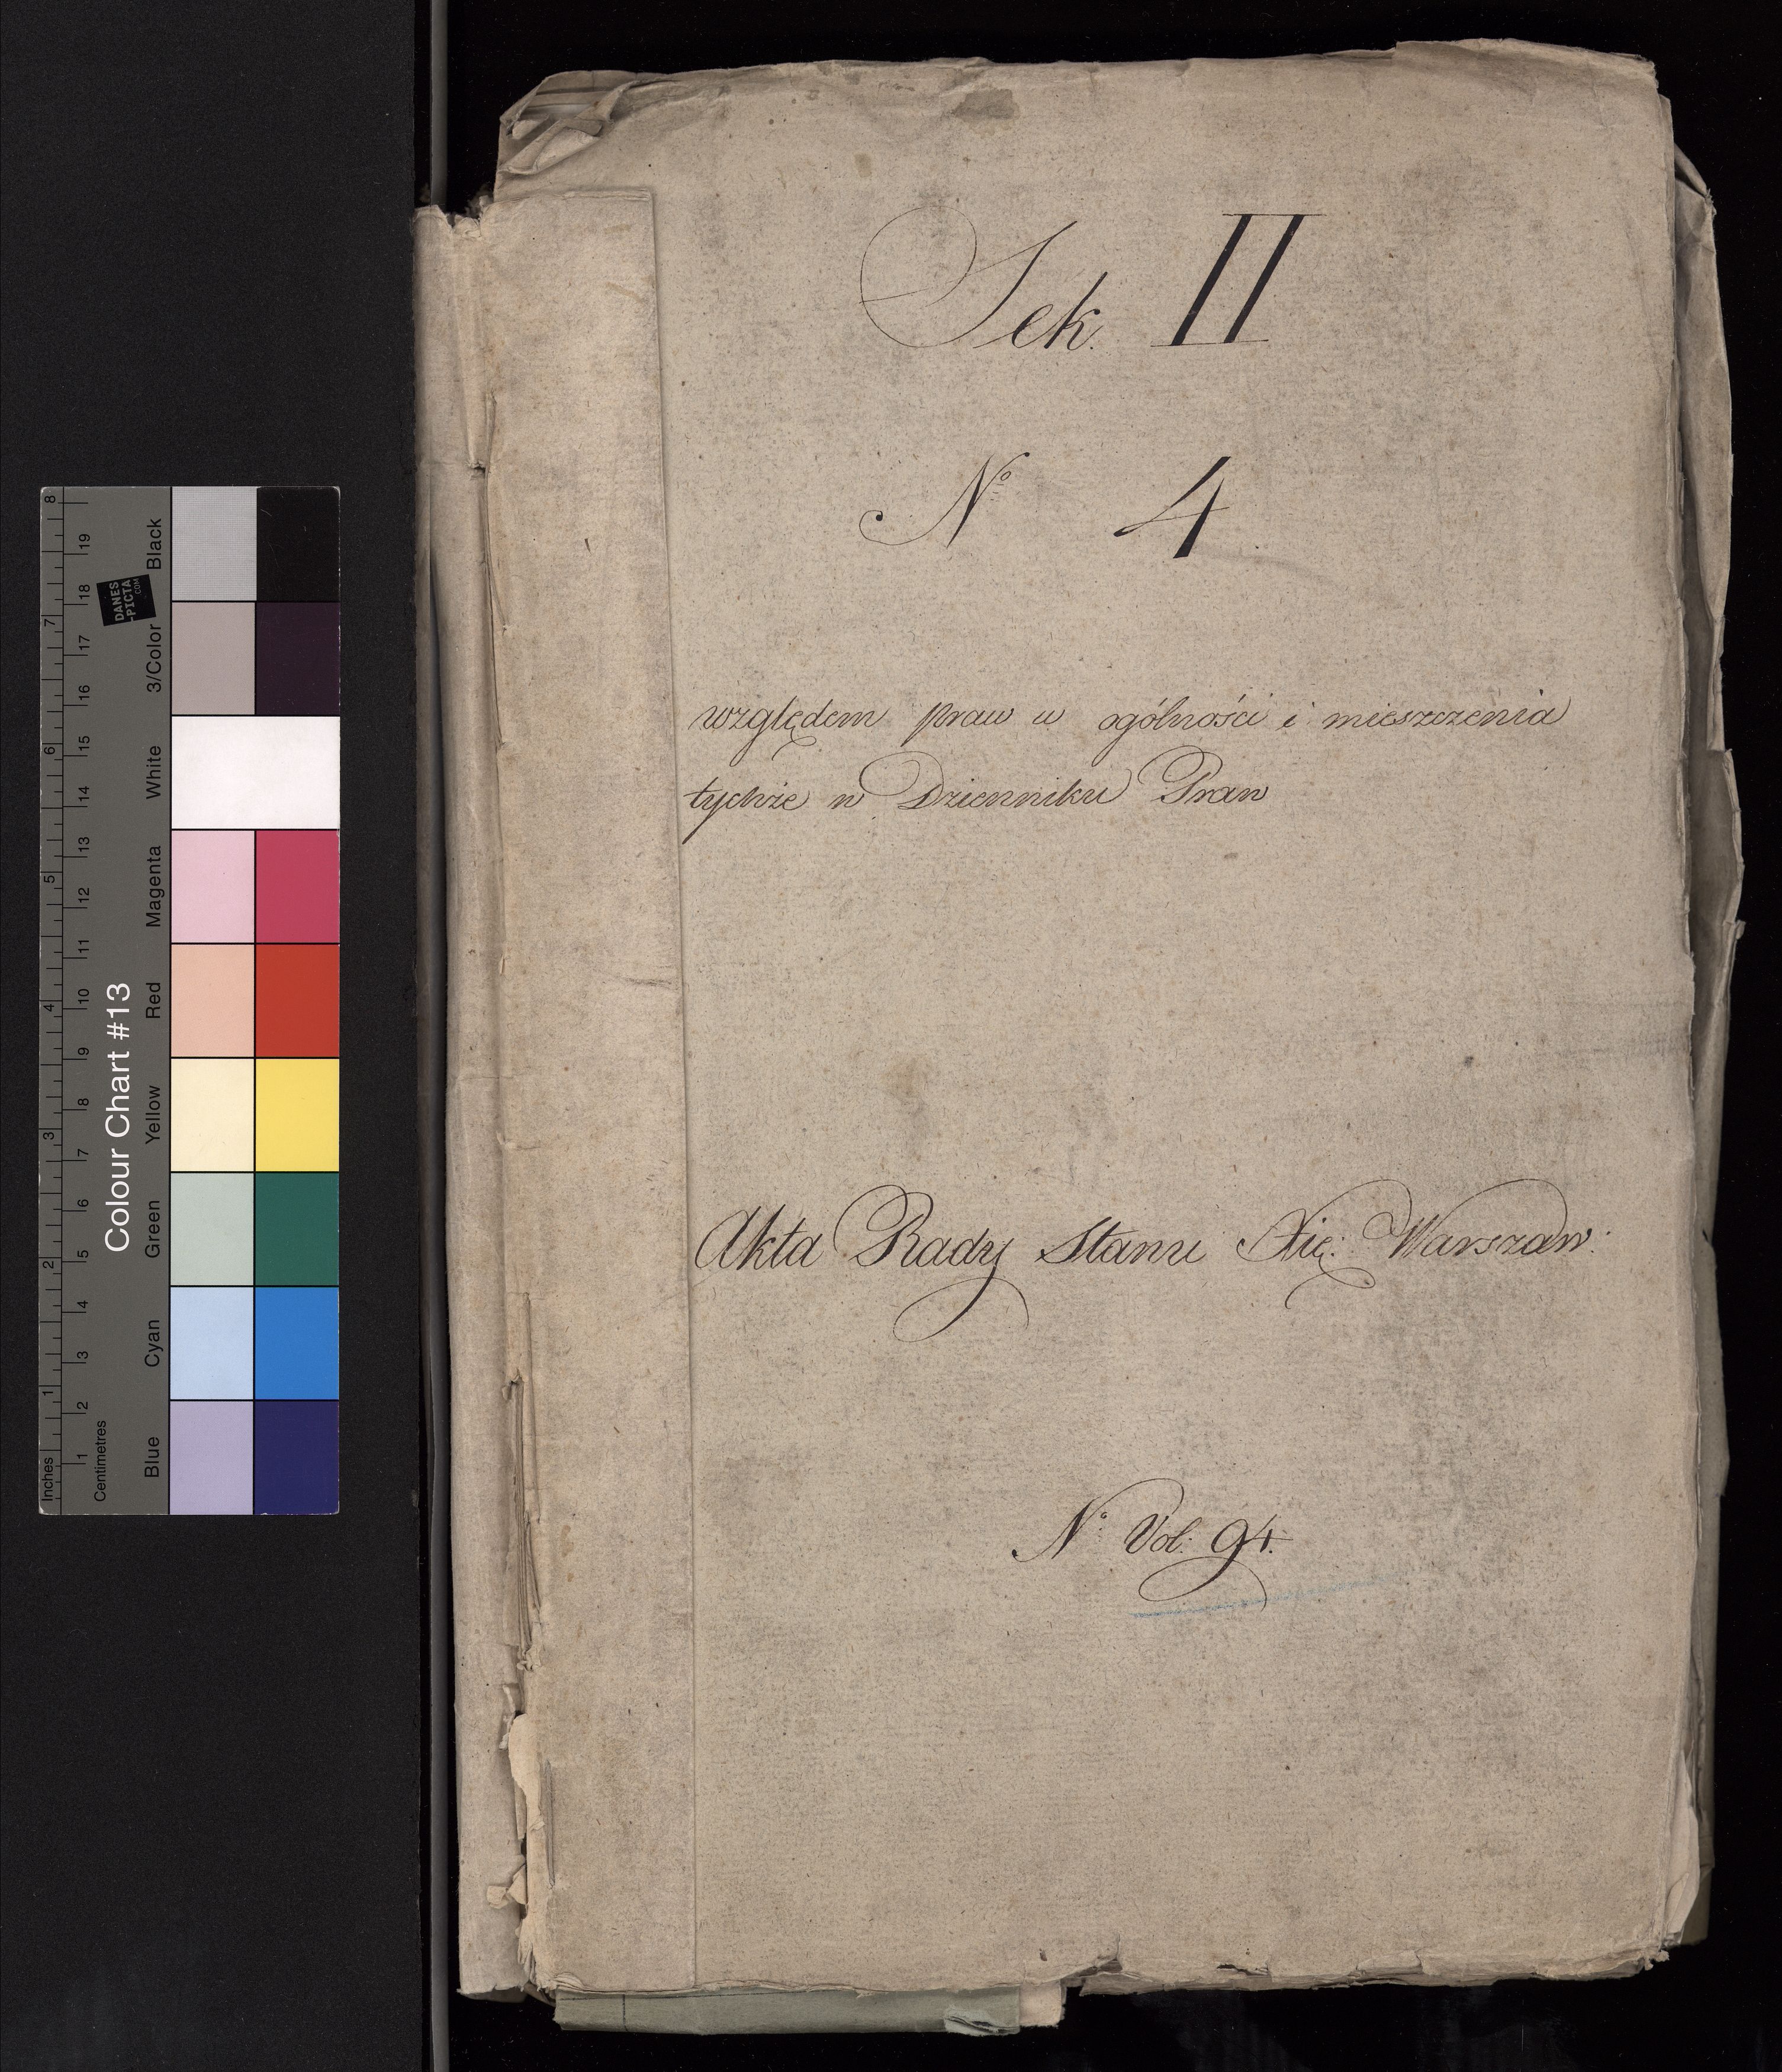 Sek. II
Nº 4
względem praw w ogólności i mieszczenia
tychże w Dzienniku Praw
Akta Rady Stanu Xię: Warszaw:
Nº Vol: 94.
Colour Chart #13
Inches
1 2 3 4 5 6 7 8
Centimetres
1 2 3 4 5 6 7 8 9 10 11 12 13 14 15 16 17 18 19
Blue Cyan Green Yellow Red Magenta White 3/Color Black
DANES
-PICTA
.COM